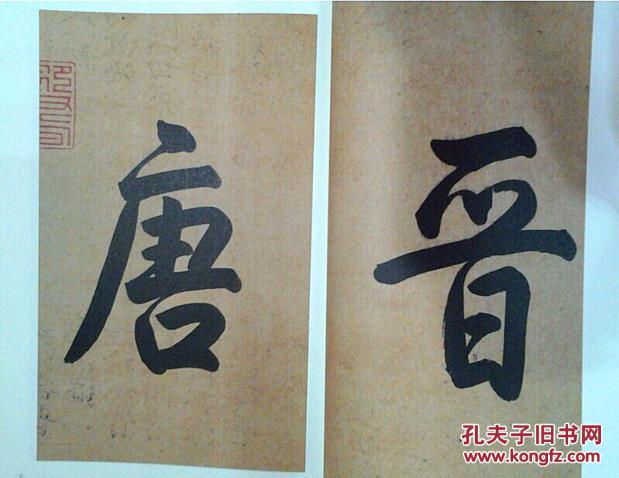 晋
唐
孔夫子旧书网
www.kongfz.com